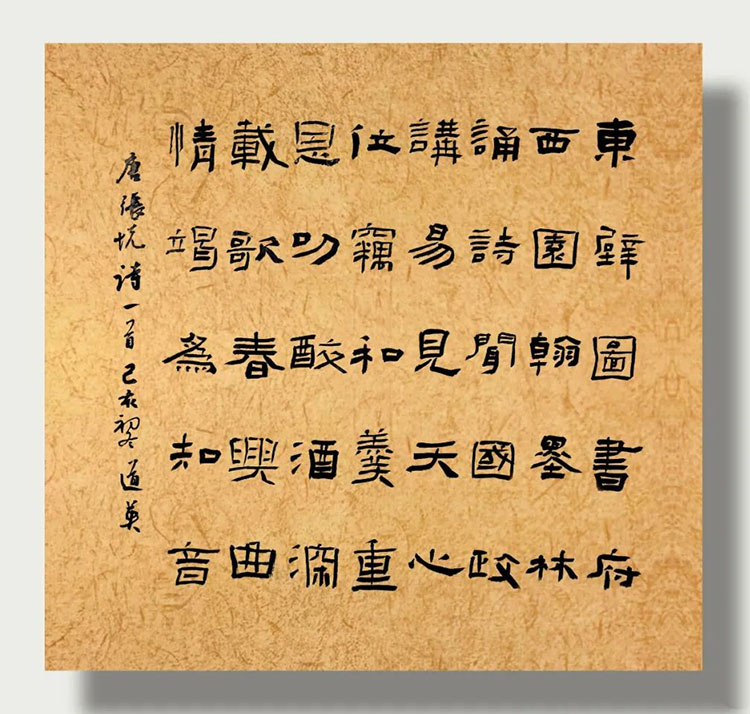 東壁圖書府
西園翰墨林
誦詩聞國政
講易見天心
位竊和羹重
恩叨醉酒深
載歌春興曲
情竭為知音
唐張悅詩一首己亥初冬道英